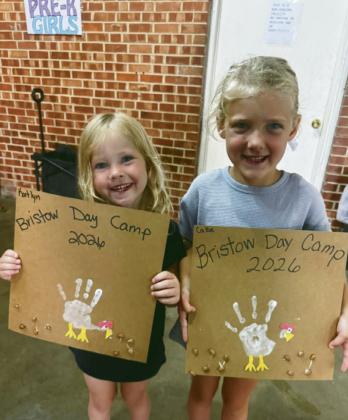 PRE-K
GIRLS
Kaitlyn
Bristow Day Camp
2026
Callie
Bristow Day Camp
2026